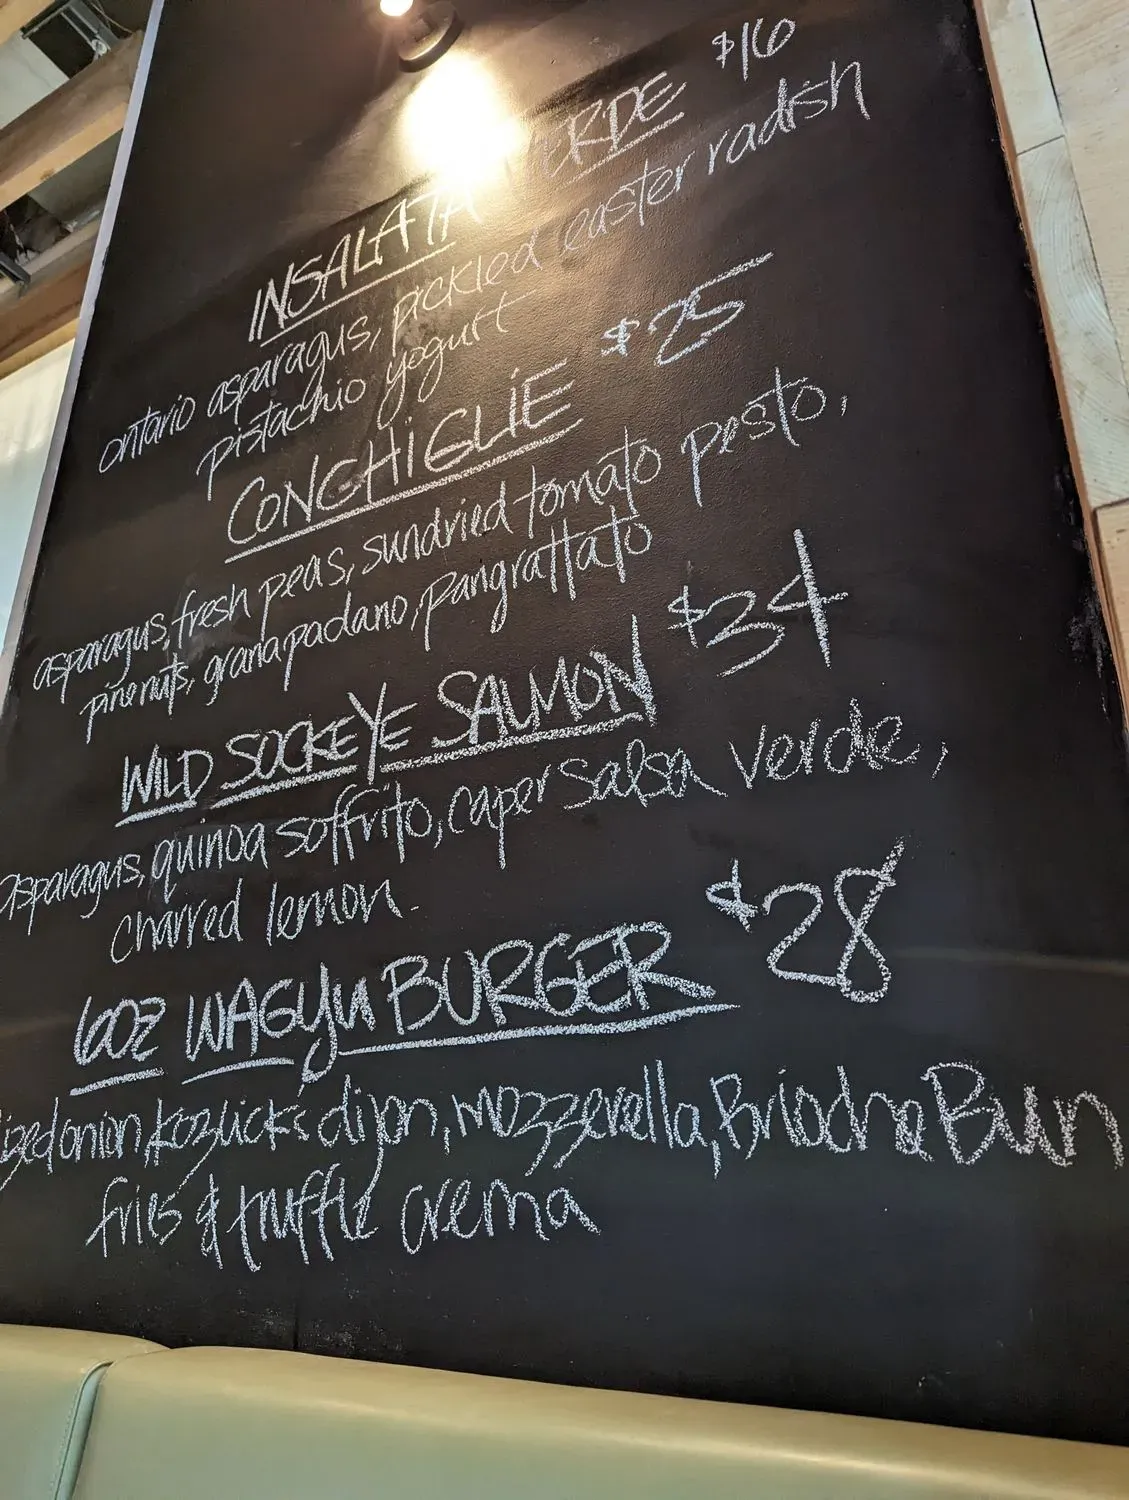 INSALATA VERDE $16
ontario asparagus, pickled easter radish
pistachio yogurt
CONCHiGLiE $25
asparagus, fresh peas, sundried tomato pesto,
pinenuts, grana padano, pangrattato
WILD SOCKEYE SALMON $34
asparagus, quinoa soffrito, caper salsa verde,
charred lemon.
6oz WAGyu BURGER $28
onion, kozlicks dijon, mozzerella, Brioche Bun
fries & truffle crema